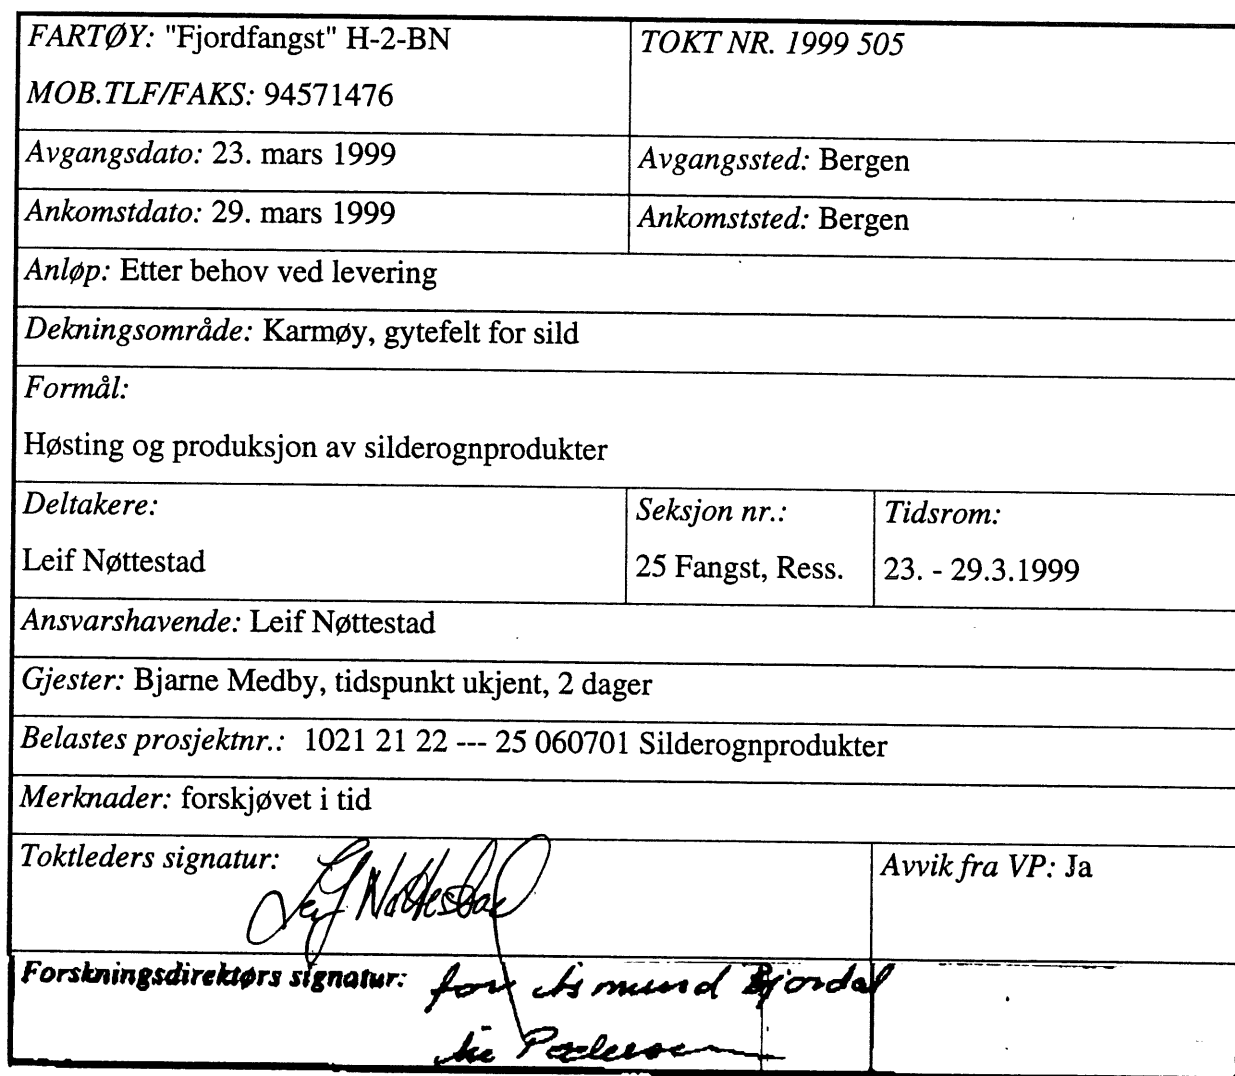 FARTØY: "Fjordfangst" H-2-BN
MOB.TLF/FAKS: 94571476
TOKT NR. 1999 505
Avgangsdato: 23. mars 1999
Avgangssted: Bergen
Ankomstdato: 29. mars 1999
Ankomststed: Bergen
Anløp: Etter behov ved levering
Dekningsområde: Karmøy, gytefelt for sild
Formål:
Høsting og produksjon av silderognprodukter
Deltakere:
Leif Nøttestad
Seksjon nr.:
25 Fangst, Ress.
Tidsrom:
23. - 29.3.1999
Ansvarshavende: Leif Nøttestad
Gjester: Bjarne Medby, tidspunkt ukjent, 2 dager
Belastes prosjektnr.: 1021 21 22 --- 25 060701 Silderognprodukter
Merknader: forskjøvet i tid
Toktleders signatur: Leif Nøttestad
Avvik fra VP: Ja
Forskningsdirektørs signatur: for Åsmund Bjordal
Pedersen